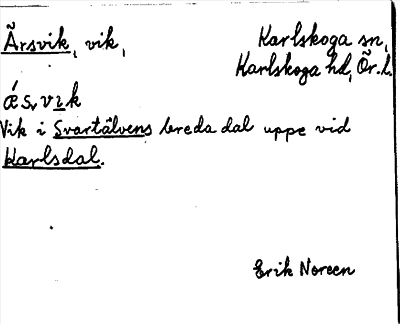 Ärsvik, vik,
Karlskoga sn,
Karlskoga hd, Ör. l.
ǽsvik
Vik i Svartälvens breda dal uppe vid
Karlsdal.
Erik Noreen